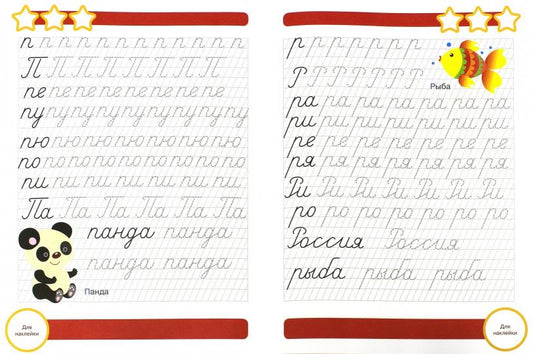 п п п п п п п п п п п
П П П П П П П П П
пе пе пе пе пе пе пе пе
пу пу пу пу пу пу пу пу
пю пю пю пю пю пю пю пю
по по по по по по по по по
пи пи пи пи пи пи пи
Па Па Па Па Па Па
панда панда
панда панда
Панда
Для наклейки
р р р р р р р
Р Р Р Р Р Р
Рыба
ра ра ра ра ра ра ра
ри ри ри ри ри ри
ре ре ре ре ре ре ре
ря ря ря ря ря ря ря
Ри Ри Ри Ри Ри Ри
ро ро ро ро ро ро ро
Россия Россия
рыба рыба рыба
Для наклейки